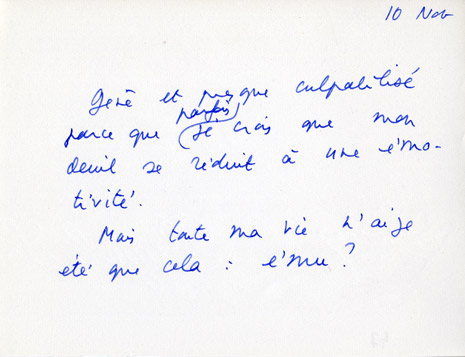 10 Nov
Gêné et presque culpabilisé
parfois
parce que je crois que mon
deuil se réduit à une émo-
tivité.
Mais toute ma vie n'ai je
été que cela : ému ?